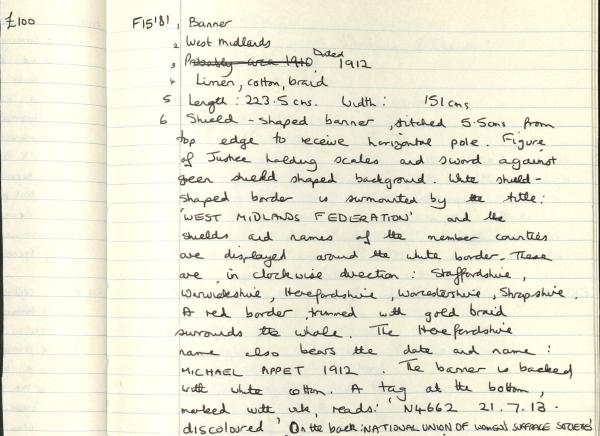 £100 F15'81, 1 Banner
2 West Midlands
3 Probably circa 1910. Dated 1912
4 Linen, cotton, braid
5 Length: 223.5 cms. Width: 151 cms
6 Shield-shaped banner, stitched 5.5cms from
top edge to receive horizontal pole. Figure
of Justice holding scales and sword against
green shield shaped background. White shield-
shaped border is surmounted by the title:
'WEST MIDLANDS FEDERATION' and the
shields and names of the member counties
are displayed around the white border. These
are, in clockwise direction: Staffordshire,
Warwickshire, Herefordshire, Worcestershire, Shropshire.
A red border, trimmed with gold braid
surrounds the whole. The Herefordshire
name also bears the date and name:
MICHAEL APPET 1912. The banner is backed
with white cotton. A tag at the bottom,
marked with ink, reads: 'N4662 21.7.13.
discoloured' On the back: NATIONAL UNION OF WOMEN'S SUFFRAGE SOCIETIES'